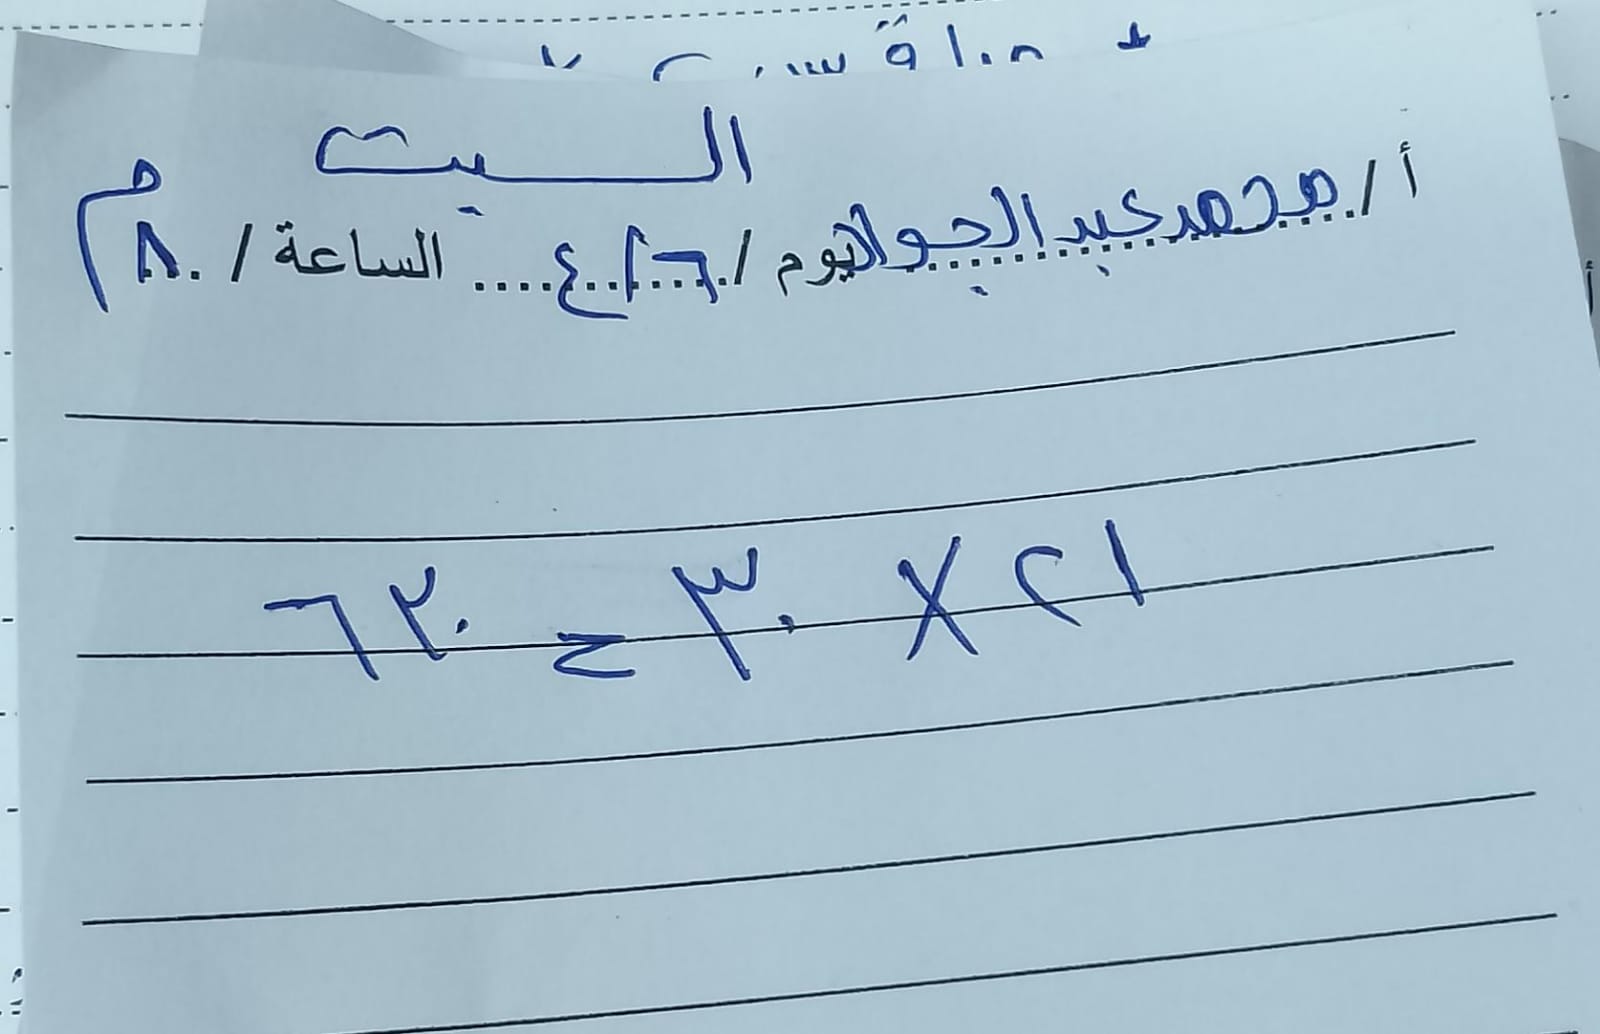 السبت
أ / محمد عبد الجواد اليوم / ٦ / ٤ .... الساعة / ٨ م
٢١ × ٣٠ = ٦٣٠